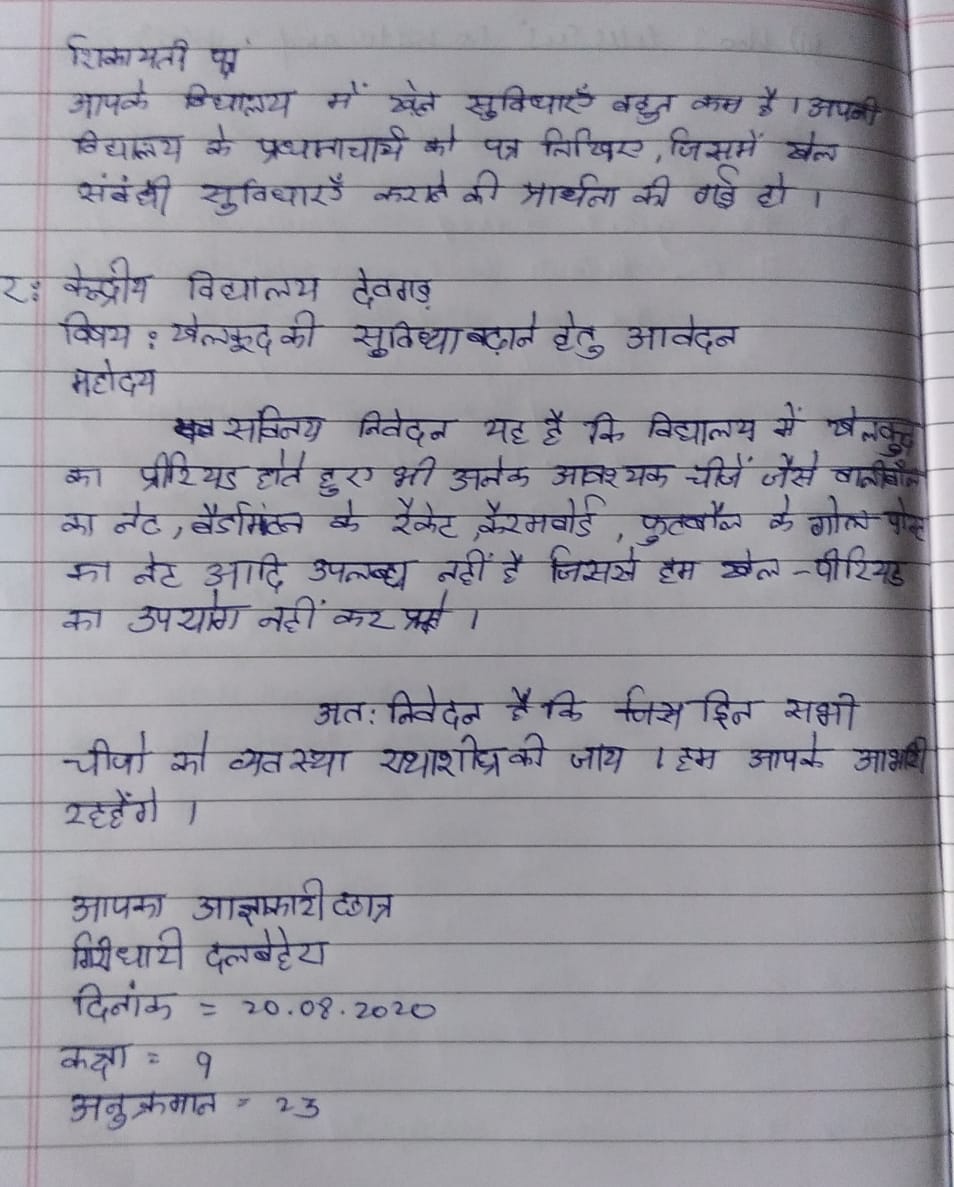 शिकायती पत्र
आपके विद्यालय में खेल सुविधाएँ बहुत कम है । अपनी
विद्यालय के प्रधानाचार्य को पत्र लिखिए, जिसमें खेल
संबंधी सुविधाएँ कराने की प्रार्थना की गई हो ।
केन्द्रीय विद्यालय देवगड़
विषय : खेलकूद की सुविधा बढ़ाने हेतु आवेदन
महोदय
सविनय निवेदन यह है कि विद्यालय में खेलकुद
का प्रीरियड होते हुए भी अनेक आवश्यक चीजें जैसे वालीबॉल
का नेट, बैडमिंटन के रैकेट, कैरमबोर्ड, फुटबॉल के गोल पोस्ट
का नेट आदि उपलब्ध नहीं है जिससे हम खेल-पीरियड
का उपयोग नहीं कर पाते ।
अत: निवेदन है कि जिस दिन सभी
चीजो को व्यवस्था यथाशीघ्र की जाय । हम आपके आभारी
रहहेंगे ।
आपका आज्ञाकारी छात्र
गिरीधारी दलबेहेरा
दिनांक = 20.08.2020
कक्षा = 9
अनुक्रमान = 23